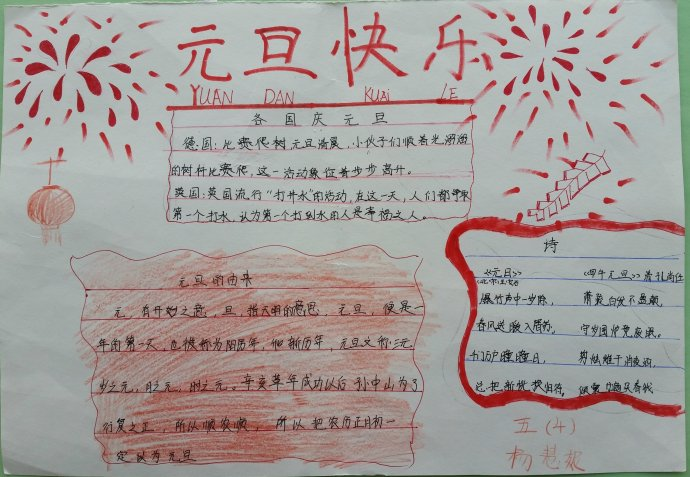 元旦快乐
YUAN DAN KUAI LE
各国庆元旦
德国:比赛爬树元旦清晨,小伙子们顺着光溜溜
的树杆比赛爬,这一活动象征着步步高升。
英国:英国流行"打井水"的活动,在这一天,人们都争取
第一个打水,认为第一个打到水的人是幸福之人。
元旦的由来
元,有开始之意,旦,指天明的意思,元旦,便是一
年的第一天,也被称为阳历年,新历年,元旦又称三元
岁之元,月之元,时之元。辛亥革年成功以后孙中山为了
行夏之正,所以顺农顺,所以把农历正月初一
定以为元旦
诗
《元日》
爆竹声中一岁除,
春风送暖入屠苏,
千门万户曈曈日,
总把新桃换旧符,
《四年元旦》 清 孔尚任
萧疏白发不盈颠,
守岁围炉竟废眠。
剪烛催干消夜酒,
五(4)
杨慧